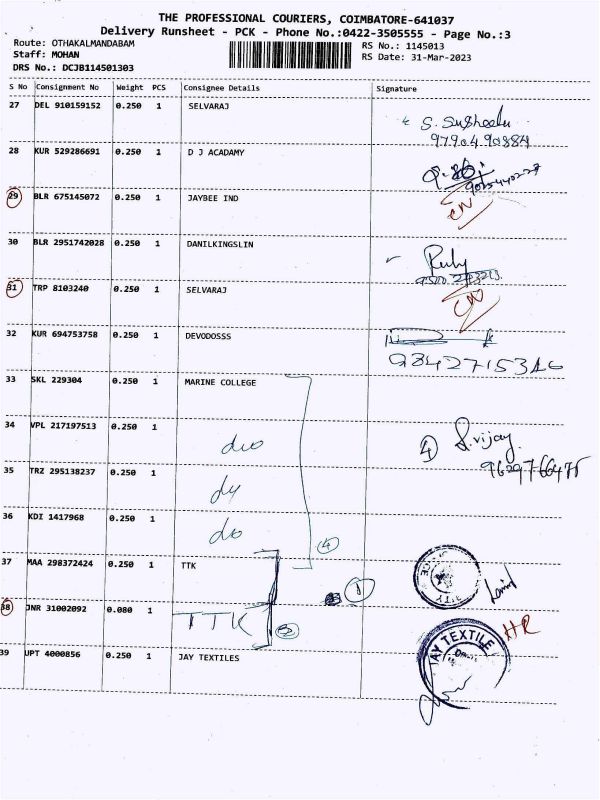 THE PROFESSIONAL COURIERS, COIMBATORE-641037
Delivery Runsheet - PCK - Phone No.:0422-3505555 - Page No.:3
Route: OTHAKALMANDABAM
RS No.: 1145013
Staff: MOHAN
RS Date: 31-Mar-2023
DRS No.: DCJB114501303
S No Consignment No Weight PCS Consignee Details Signature
27 DEL 910159152 0.250 1 SELVARAJ
S. Susheela
9790490884
28 KUR 529286691 0.250 1 D J ACADAMY
29 BLR 675145072 0.250 1 JAYBEE IND
CN
30 BLR 2951742028 0.250 1 DANILKINGSLIN
Ruby
31 TRP 8103240 0.250 1 SELVARAJ
CN
32 KUR 694753758 0.250 1 DEVODOSSS
9342715316
33 SKL 229304 0.250 1 MARINE COLLEGE
34 VPL 217197513 0.250 1
do
4 S. vijay
9629766475
35 TRZ 295138237 0.250 1
do
36 KDI 1417968 0.250 1
do
4
37 MAA 298372424 0.250 1 TTK
1
38 JNR 31002092 0.080 1 TTK
HR
39 UPT 4000856 0.250 1 JAY TEXTILES
JAY TEXTILE